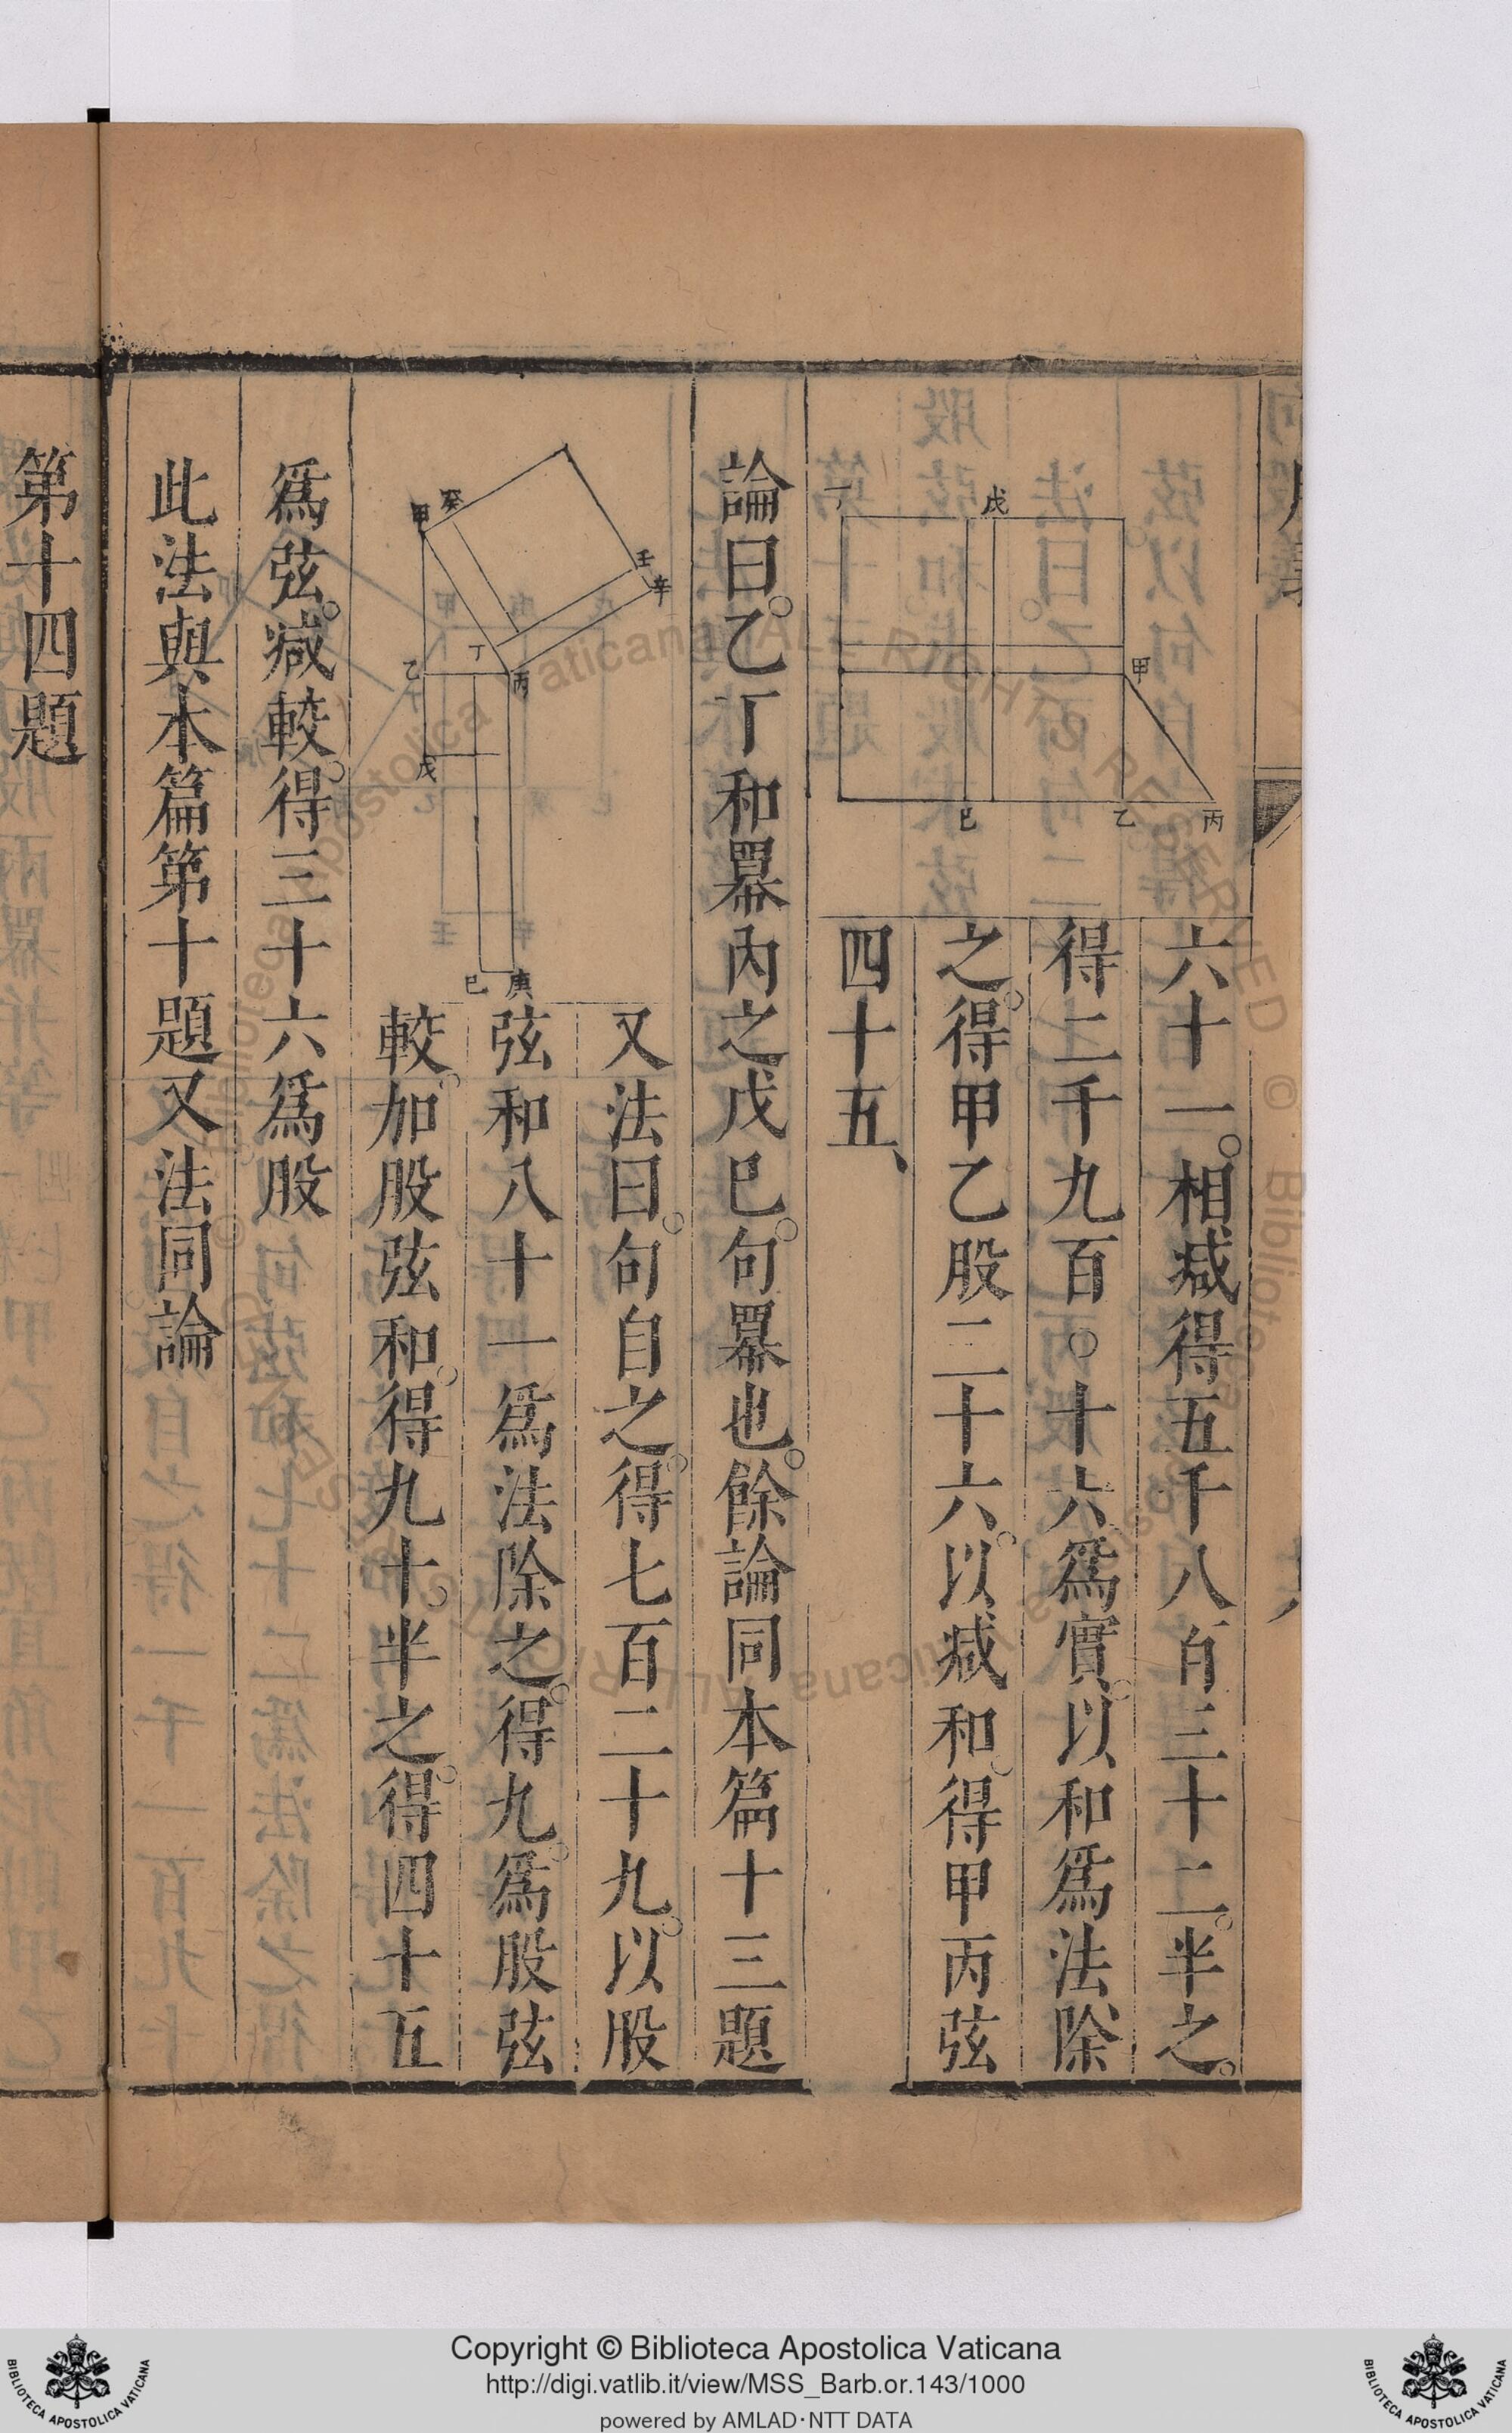 六十一。相减得五千八百三十二。半之。
得二千九百○十六爲實。以和爲法除
之。得甲乙股三十六。以减和。得甲丙弦
四十五、
丁
戊
甲
巳
乙
丙
論曰。乙丁和羃內之戊巳。句羃也。餘論同本篇十三題
甲
癸
壬
辛
乙
丁
丙
戊
巳
庚
又法曰。句自之。得七百二十九。以股
弦和八十一爲法除之。得九。爲股弦
較。加股弦和。得九十。半之。得四十五
爲弦。减較。得三十六爲股
此法與本篇第十題又法同論
第十四題
Copyright © Biblioteca Apostolica Vaticana
http://digi.vatlib.it/view/MSS_Barb.or.143/1000
powered by AMLAD·NTT DATA
BIBLIOTECA APOSTOLICA VATICANA
BIBLIOTECA APOSTOLICA VATICANA